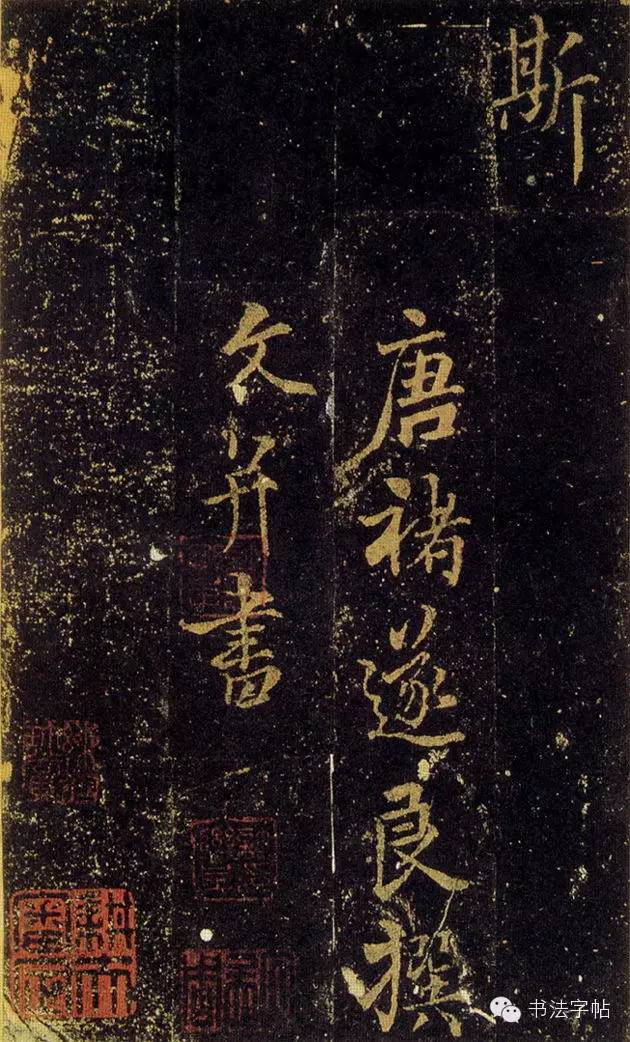 斯
唐褚遂良撰
文并書
书法字帖